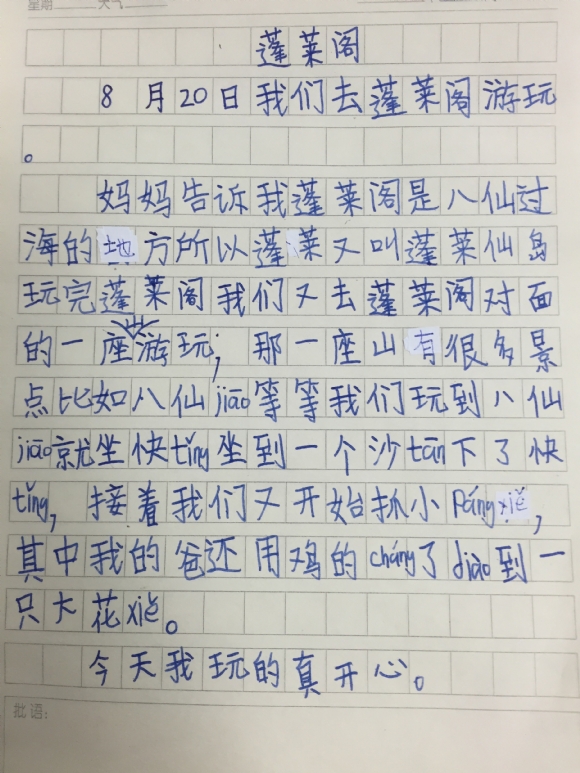 星期 天气
蓬莱阁
8月20日我们去蓬莱阁游玩
。
妈妈告诉我蓬莱阁是八仙过
海的地方所以蓬莱又叫蓬莱仙岛
玩完蓬莱阁我们又去蓬莱阁对面
的一座山游玩,那一座山有很多景
点比如八仙jiāo等等我们玩到八仙
jiāo就坐快tǐng坐到一个沙tān下了快
tǐng,接着我们又开始抓小Páng xiè,
其中我的爸还用鸡的cháng了diào到一
只大花xiè。
今天我玩的真开心。
批语: